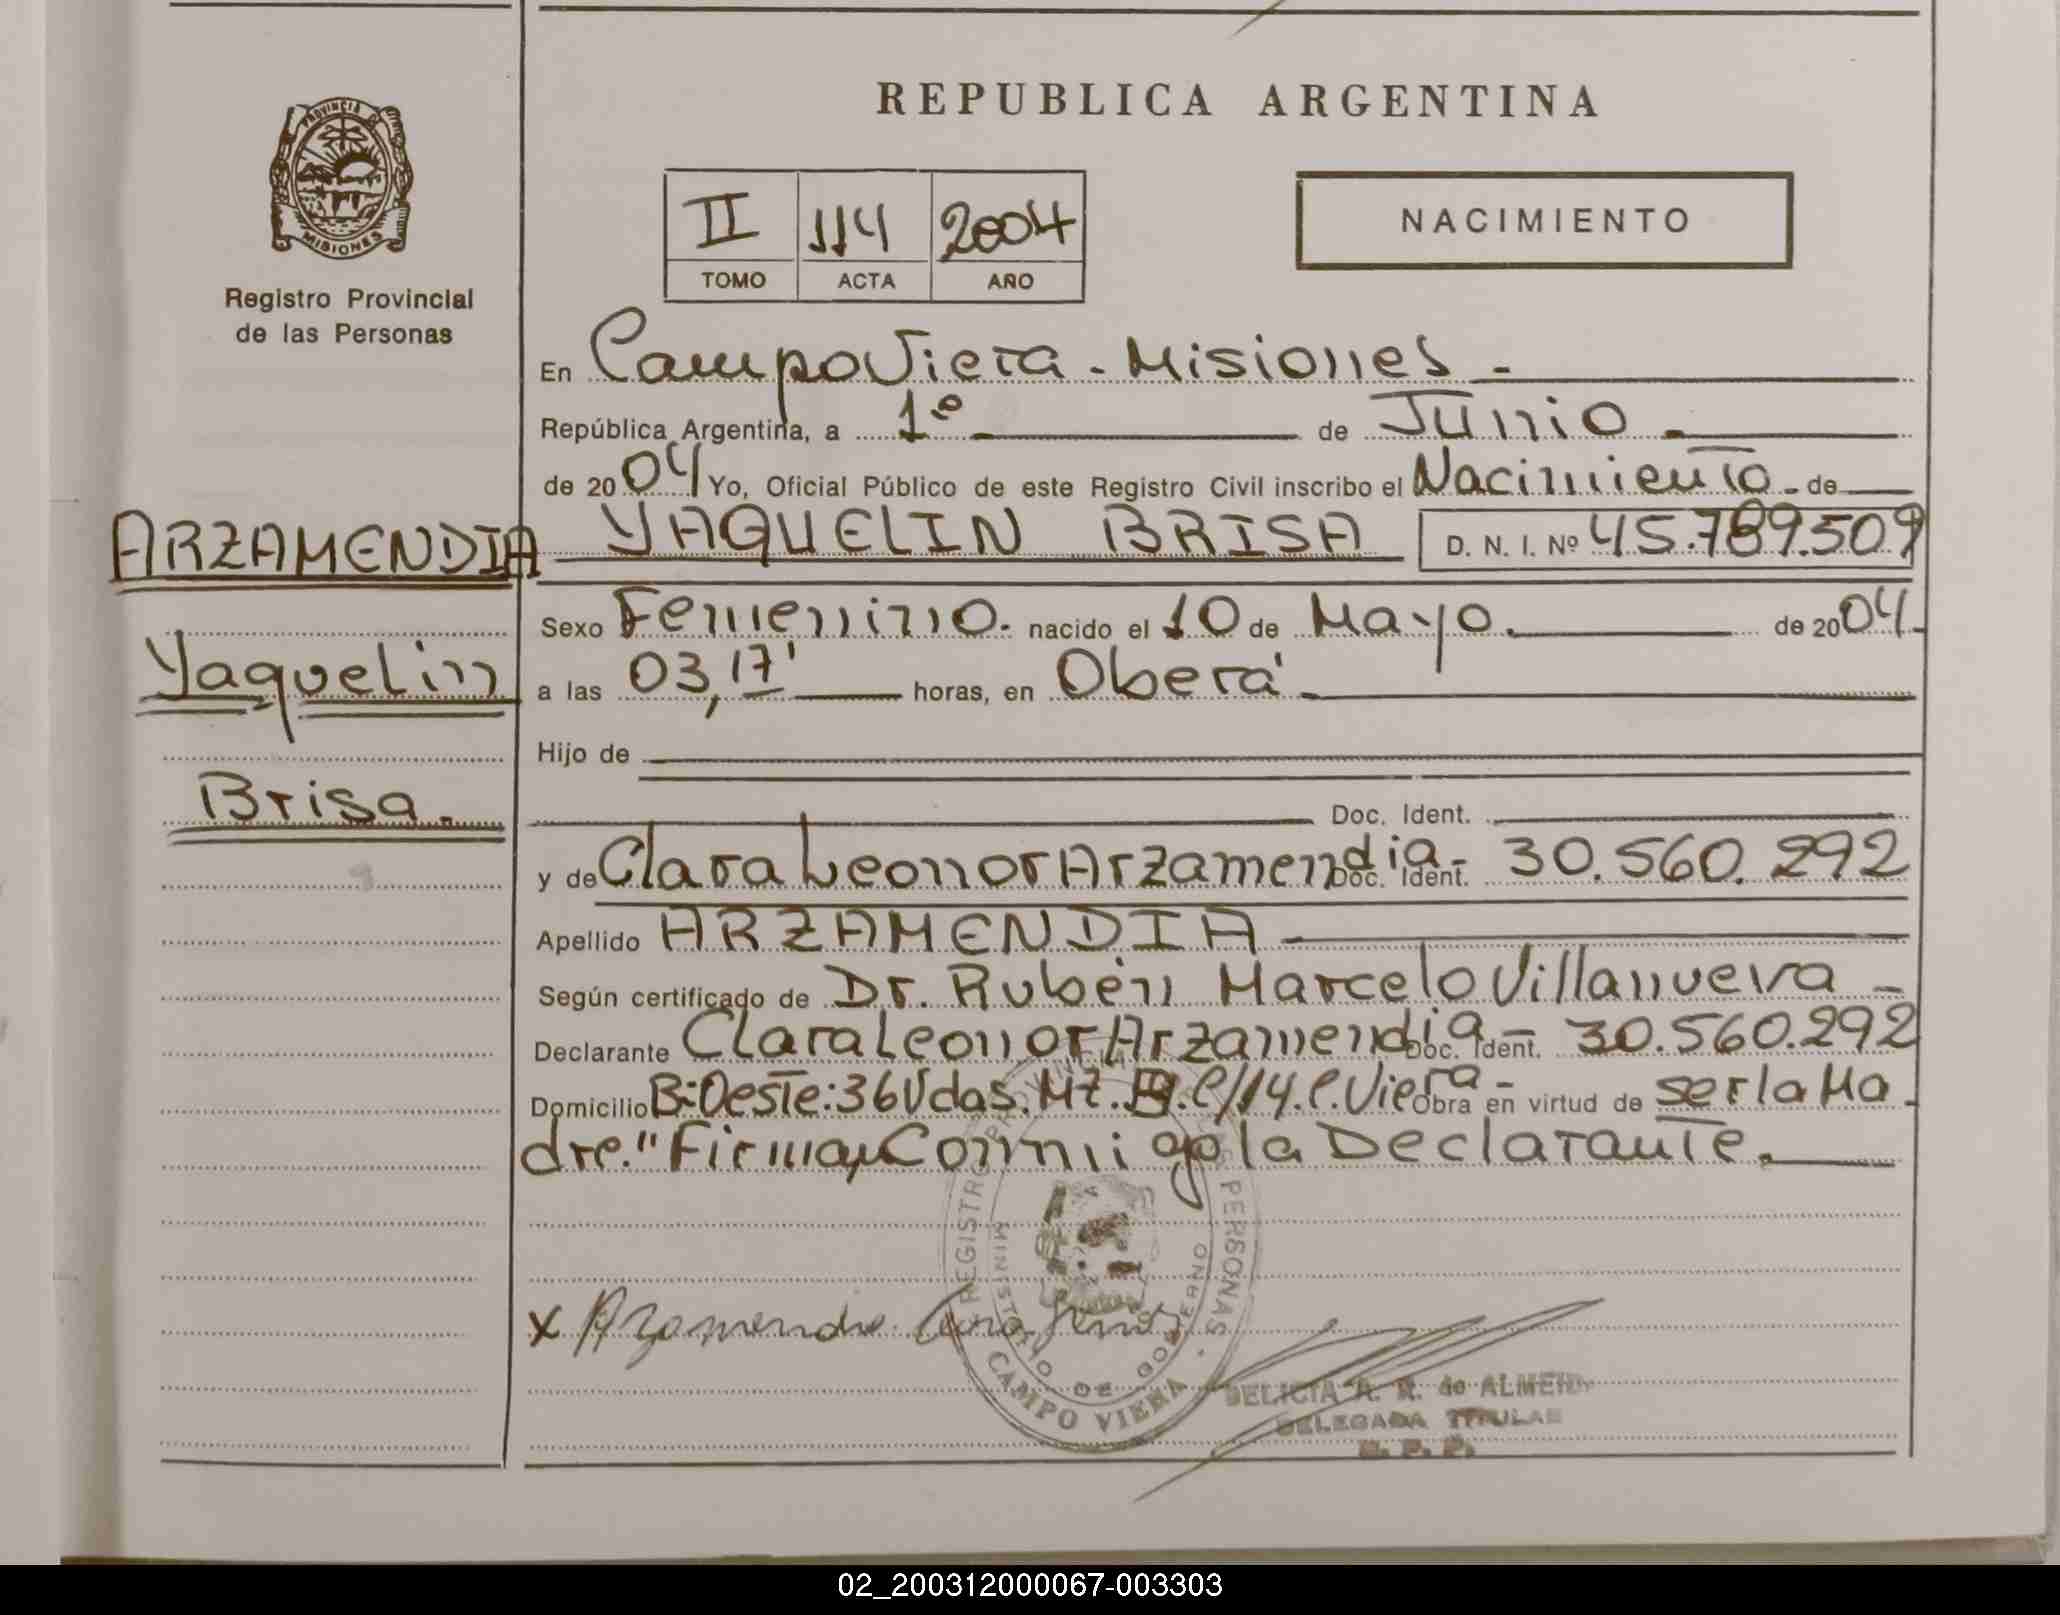 PROVINCIA DE
MISIONES
Registro Provincial
de las Personas
ARZAMENDIA
Yaquelin
Brisa.
REPUBLICA ARGENTINA
II 114 2004
TOMO ACTA AÑO
NACIMIENTO
En Campo Viera - Misiones -
República Argentina, a 1º de Junio.
de 2004 Yo, Oficial Público de este Registro Civil inscribo el Nacimiento - de
YAQUELIN BRISA D. N. I. Nº 45.789.509
Sexo Femenino. nacido el 10 de Mayo. de 2004.
a las 03,17' horas, en Oberá.
Hijo de
Doc. Ident.
y de Clara Leonor Arzamendia - Doc. Ident. 30.560.292
Apellido ARZAMENDIA
Según certificado de Dr. Rubén Marcelo Villanueva -
Declarante Clara Leonor Arzamendia - Doc. Ident. 30.560.292
Domicilio B: Oeste: 36 Vdas. Mz. C/14. C. Viera - Obra en virtud de ser la Ma
dre." Firma, Conmigo la Declarante.
x Arzamendia Clara
REGISTRO PROVINCIAL PERSONAS
MINISTERIO DE GOBIERNO
CAMPO VIERA
DELICIA A. R. de ALMEID
DELEGADA TITULAR
R. P. P.
02_200312000067-003303